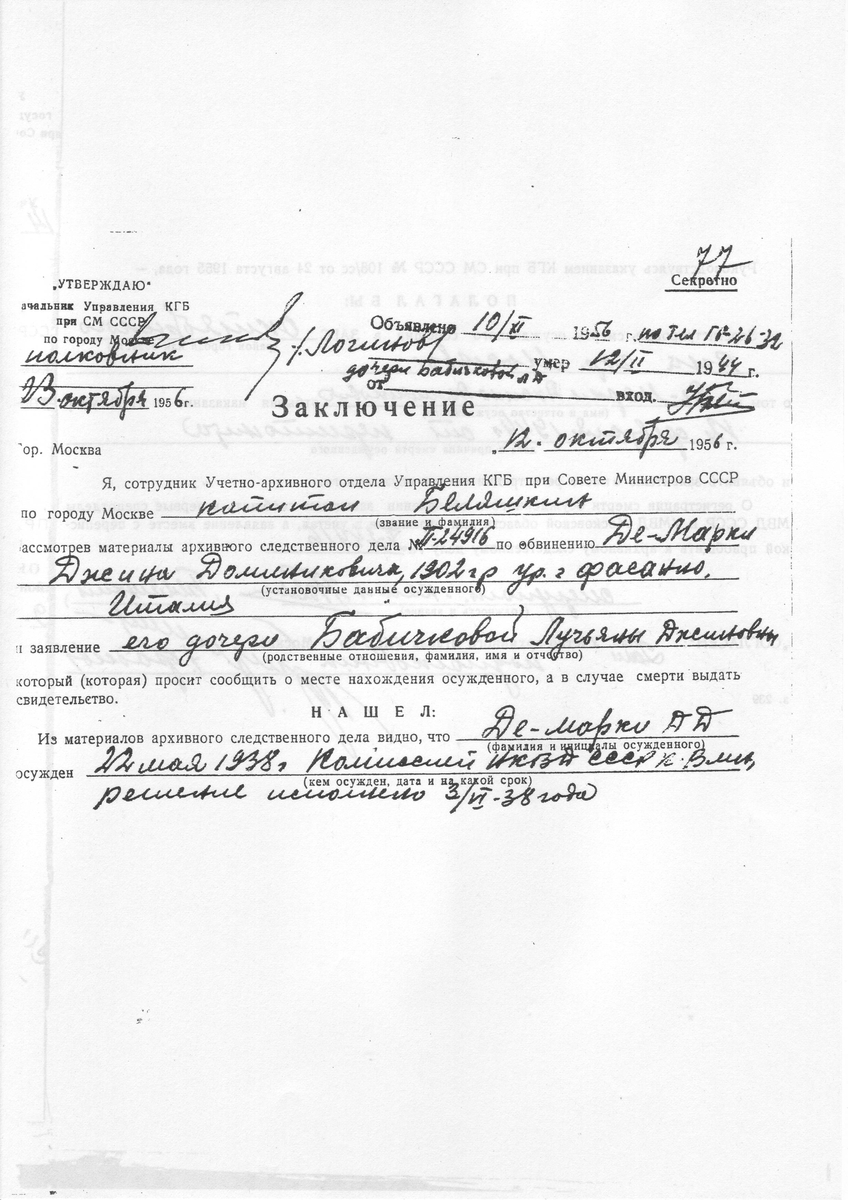 77
Секретно
„УТВЕРЖДАЮ"
ачальник Управления КГБ
при СМ СССР
по городу Москве
полковник
23 октября 1956 г.
Объявлено 10/XI 1956 г. по тел Г6-26-32
/Логинов/
умер 12/II 1944 г.
дочери Бабичковой ЛД
от вход.
Заключение
гор. Москва
„12. октября 1956 г.
Я, сотрудник Учетно-архивного отдела Управления КГБ при Совете Министров СССР
по городу Москве капитан Беляшкин
(звание и фамилия)
рассмотрев материалы архивного следственного дела № П-24916 по обвинению Де-Марки
Джина Доминиковича, 1902 г р ур. г Фасано,
(установочные данные осужденного)
Италия
и заявление его дочери Бабичковой Лучьяны Джиновны
(родственные отношения, фамилия, имя и отчество)
который (которая) просит сообщить о месте нахождения осужденного, а в случае смерти выдать
свидетельство.
НАШЕЛ:
Из материалов архивного следственного дела видно, что Де-Марки Д Д
(фамилия и инициалы осужденного)
осужден 22 мая 1938 г Комиссией НКВД СССР к. Вмн,
(кем осужден, дата и на какой срок)
решение исполнено 3/VI-38 года